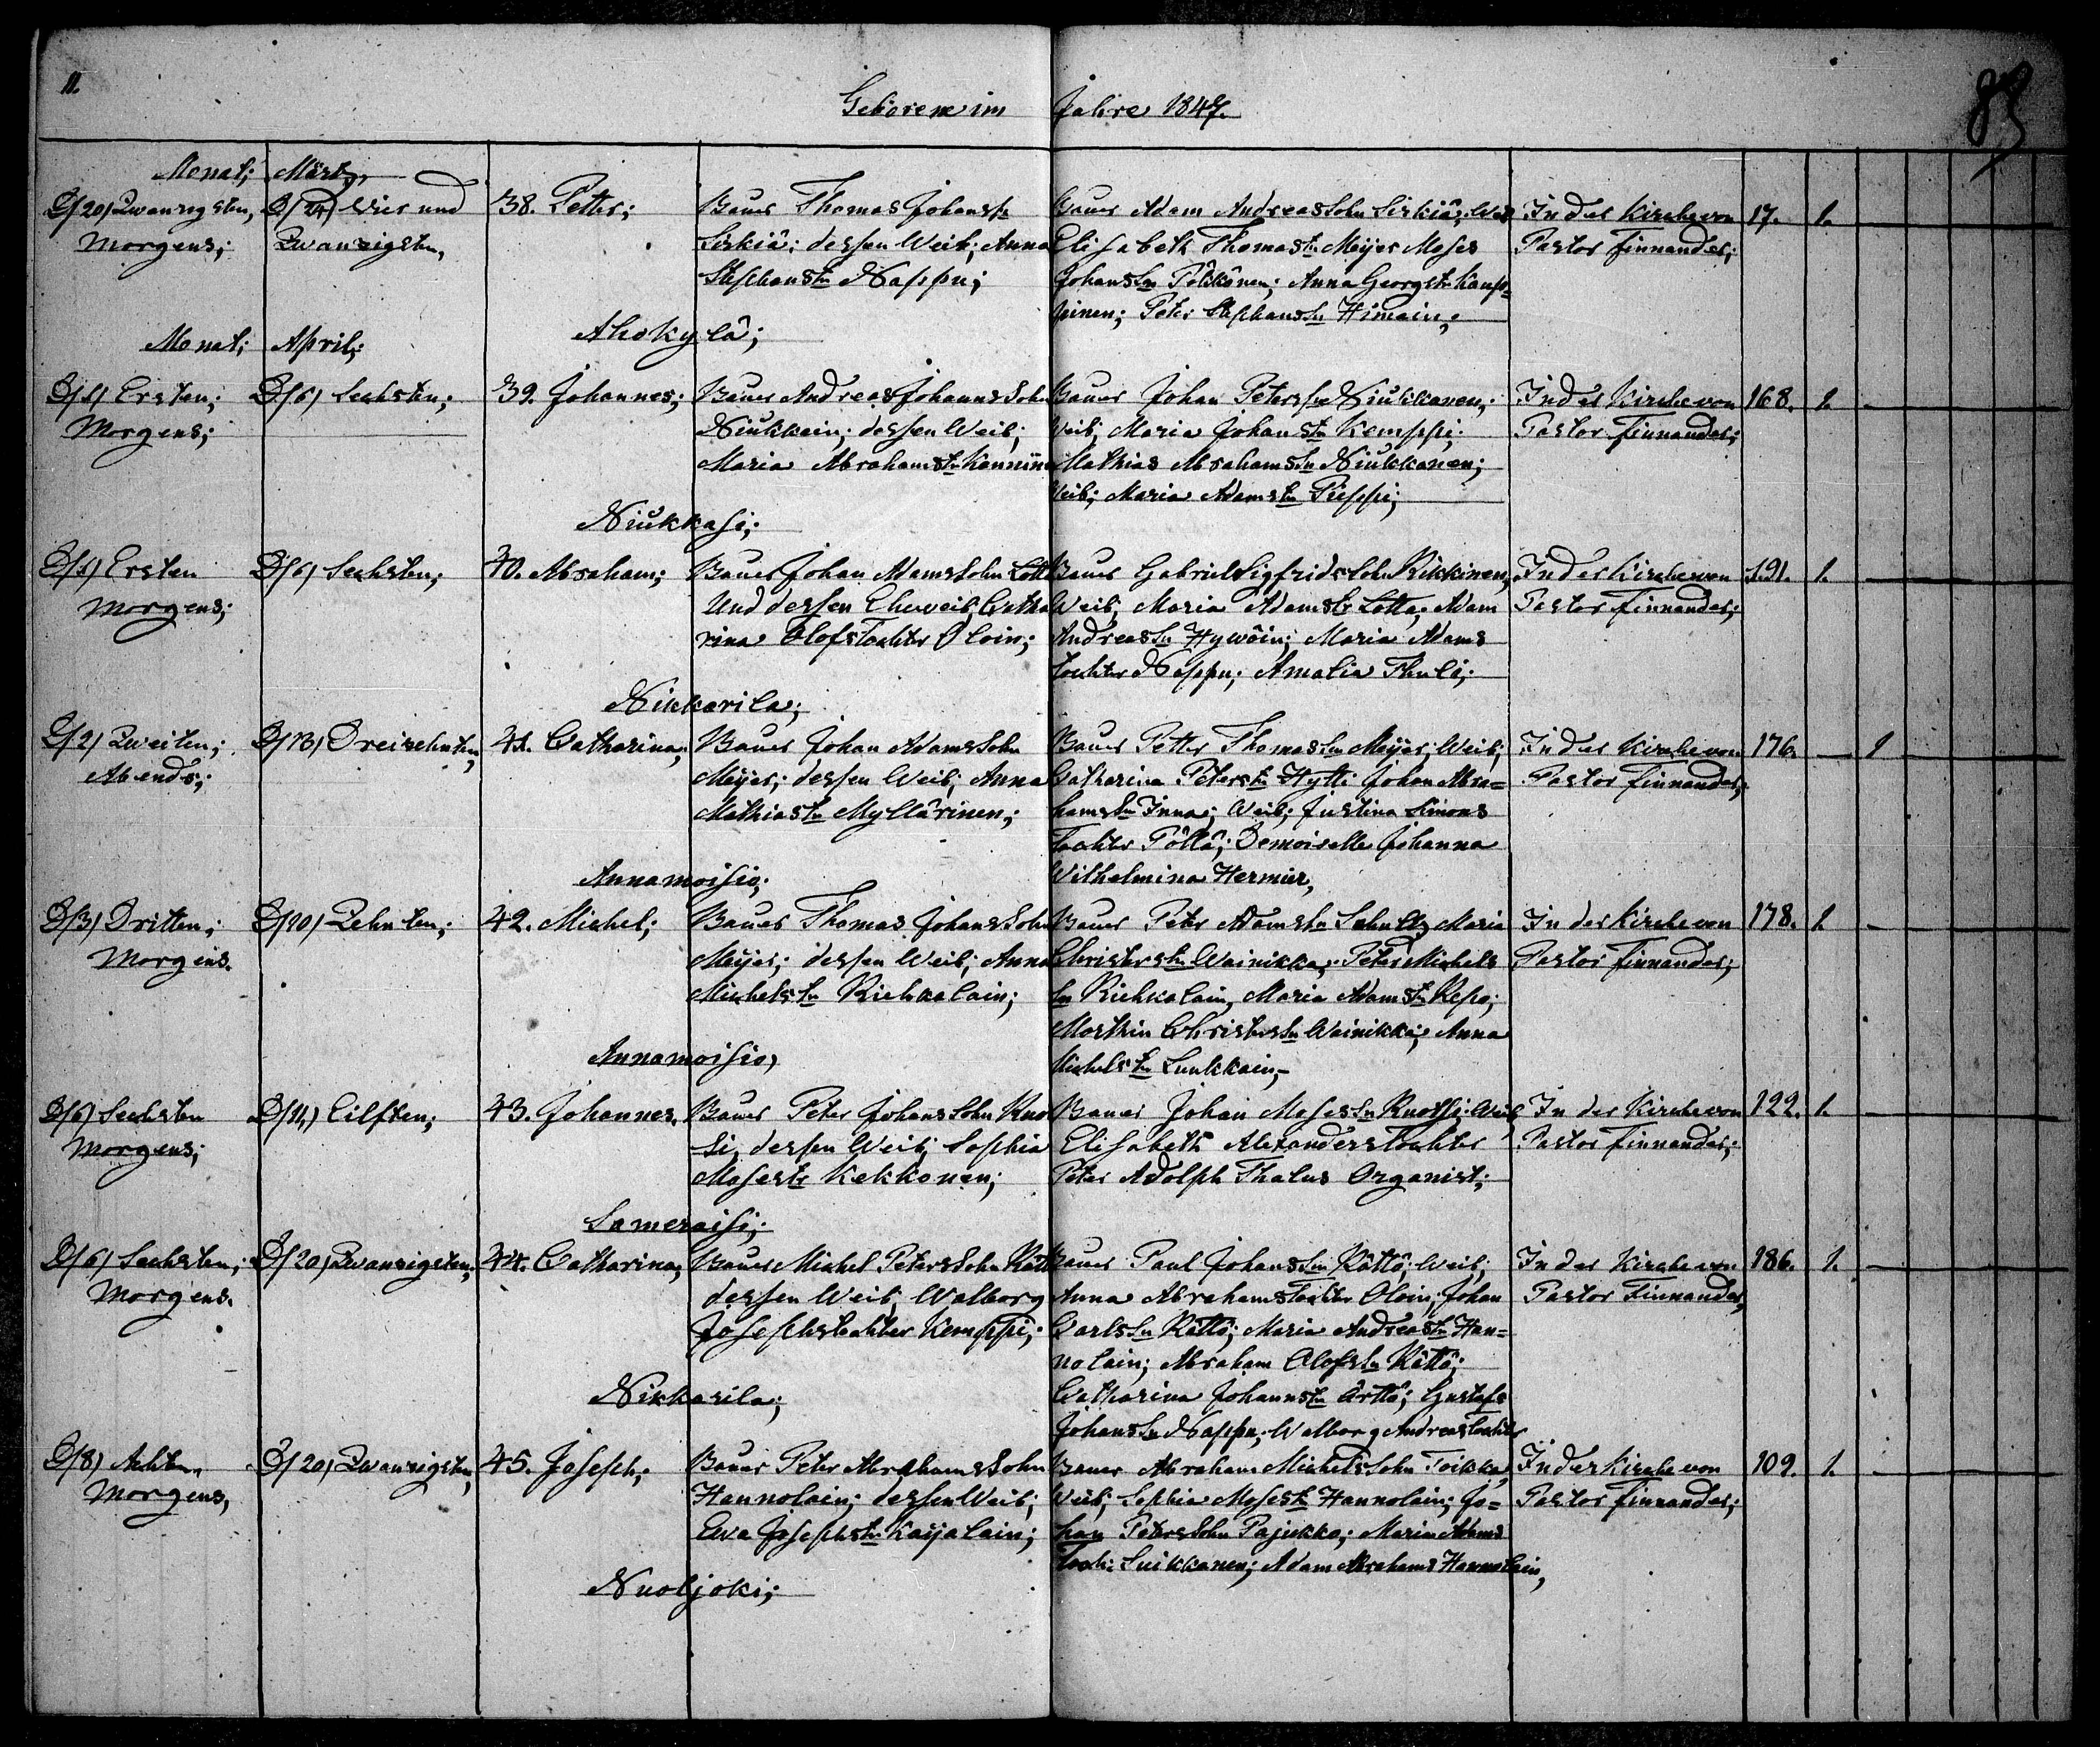 11.
83
Geborene im Jahre 1847.
Monat; Märtz,
D/20) Zwanzigsten, Morgens;
D/24) Vier und Zwanzigsten,
38. Petter;
Bauer Thomas Johanssn
Sirkiä; dessen Weib; Anna
Stephanstr Nappu;
Bauer Adam Andreassohn Sirkiä; Weib
Elisabeth Thomastr Meÿer Moses
Johanssn Pölkönen; Anna Georgstr Kaup=
pinen; Peter Stephanssn Himäin;
In der Kirche von
Pastor Finnander;
17. 1.
Ahokylä;
Monat; April;
D/1) Ersten;
Morgens;
D/6) Sechsten;
39. Johannes;
Bauer Andreas Johanns Sohn
Niukkain; dessen Weib;
Maria Abrahamstr
Bauer Johan Peterssn Niukkanen;
Weib; Maria Johanstr Kemppi;
Mathias Abrahamssn Niukkanen;
Weib; Maria Adamstr
In der Kirche von
Pastor Finnander;
168. 1.
Niukkasi;
D/1) Ersten
Morgens;
D/6) Sechsten;
40. Abraham;
Bauer Johan Adamssohn
Und dessen Eheweib; Catha
rina Olofs Tochter Oloin;
Bauer Gabriel Sigfrids Sohn Rikkinen,
Weib; Maria Adamstr Lotta; Adam
Andreassn Hywöin; Maria Adams
tochter Nappu; Amalia Thuli;
In der Kirche von
Pastor Finnander;
191. 1.
Nikkarila;
D/2) Zweiten;
Abends;
D/13) Dreizehnten,
41. Catharina;
Bauer Johan Adamssohn
Meÿer; dessen Weib; Anna
Mathiastr Myllärinen;
Bauer Petter Thomassn Meÿer; Weib;
Catharina Peterstr Hytti Johan Abra=
hamssn Inna; Weib; Justina Simons
Tochter Pöllä; Demoiselle Johanna
Wilhelmina Hermier,
In der Kirche von
Pastor Finnander;
176. 1
Annamoisio;
D/3) Dritten;
Morgens.
D/10) Zehnten;
42. Michel;
Bauer Thomas Johans Sohn
Meÿer; dessen Weib; Anna
Michelstr Riehkalain;
Bauer Peter Adamssn Schultz Maria
Christerstr Wainikka; Peter Michels
sn Riehkalain, Maria Adamstr Repo;
Morthin Christerssn Wainikka; Anna
Michelstr Luukkain,
In der Kirche von
Pastor Finnander;
178. 1.
Annamoisio,
D/6) Sechsten
Morgens;
D/11,) Eilften;
43. Johannes.
Bauer Peter Johans Sohn Ruo
si, dessen Weib; Sophia
Mosestr Kekkonen;
Bauer Johan Mosessn Ruotsi; Weib
Elisabeth Alexanders Tochter
Peter Adolph Thalus Organist;
In der Kirche von
Pastor Finnander;
122. 1.
Sameraisi;
D/6) Sechsten;
Morgens.
D/20) Zwanzigsten;
44. Catharina;
Bauer Michel Peters Sohn Rättö
dessen Weib; Walborg
Josephstochter Kemppi;
Bauer Paul Johanssn Rättö; Weib;
Anna Abrahams Tochter Oloin; Johan
Carlssn Rättö; Maria Andreastr Han=
nolain; Abraham Olofssn Rättö;
Catharina Johannstr Örttö; Gustafs
Johanssn Nappu; Walborg Andreas Tochter
In der Kirche von
Pastor Finnander,
186. 1.
Nikkarila;
D/8) Achten,
Morgens,
D/20) Zwanzigsten,
45. Joseph;
Bauer Peter Abrahams Sohn
Hannolain; dessen Weib;
Ewa Josephstr Kaijalain;
Bauer Abraham Michels Sohn Toikka,
Weib; Sophia Mosestr Hannolain; Jo=
han Peterssohn Pajukka; Maria Adams
Toch: Suikkanen; Adam Abrahams Hannolain,
In der Kirche von
Pastor Finnander;
109. 1.
Nuoljoki;